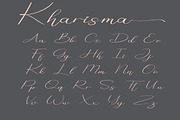 Kharisma
Aa Bb Cc Dd Ee
Ff Gg Hh Ii Jj
Kk Ll Mm Nn Oo
Pp Qq Rr Ss Tt Uu
Vv Ww Xx Yy Zz